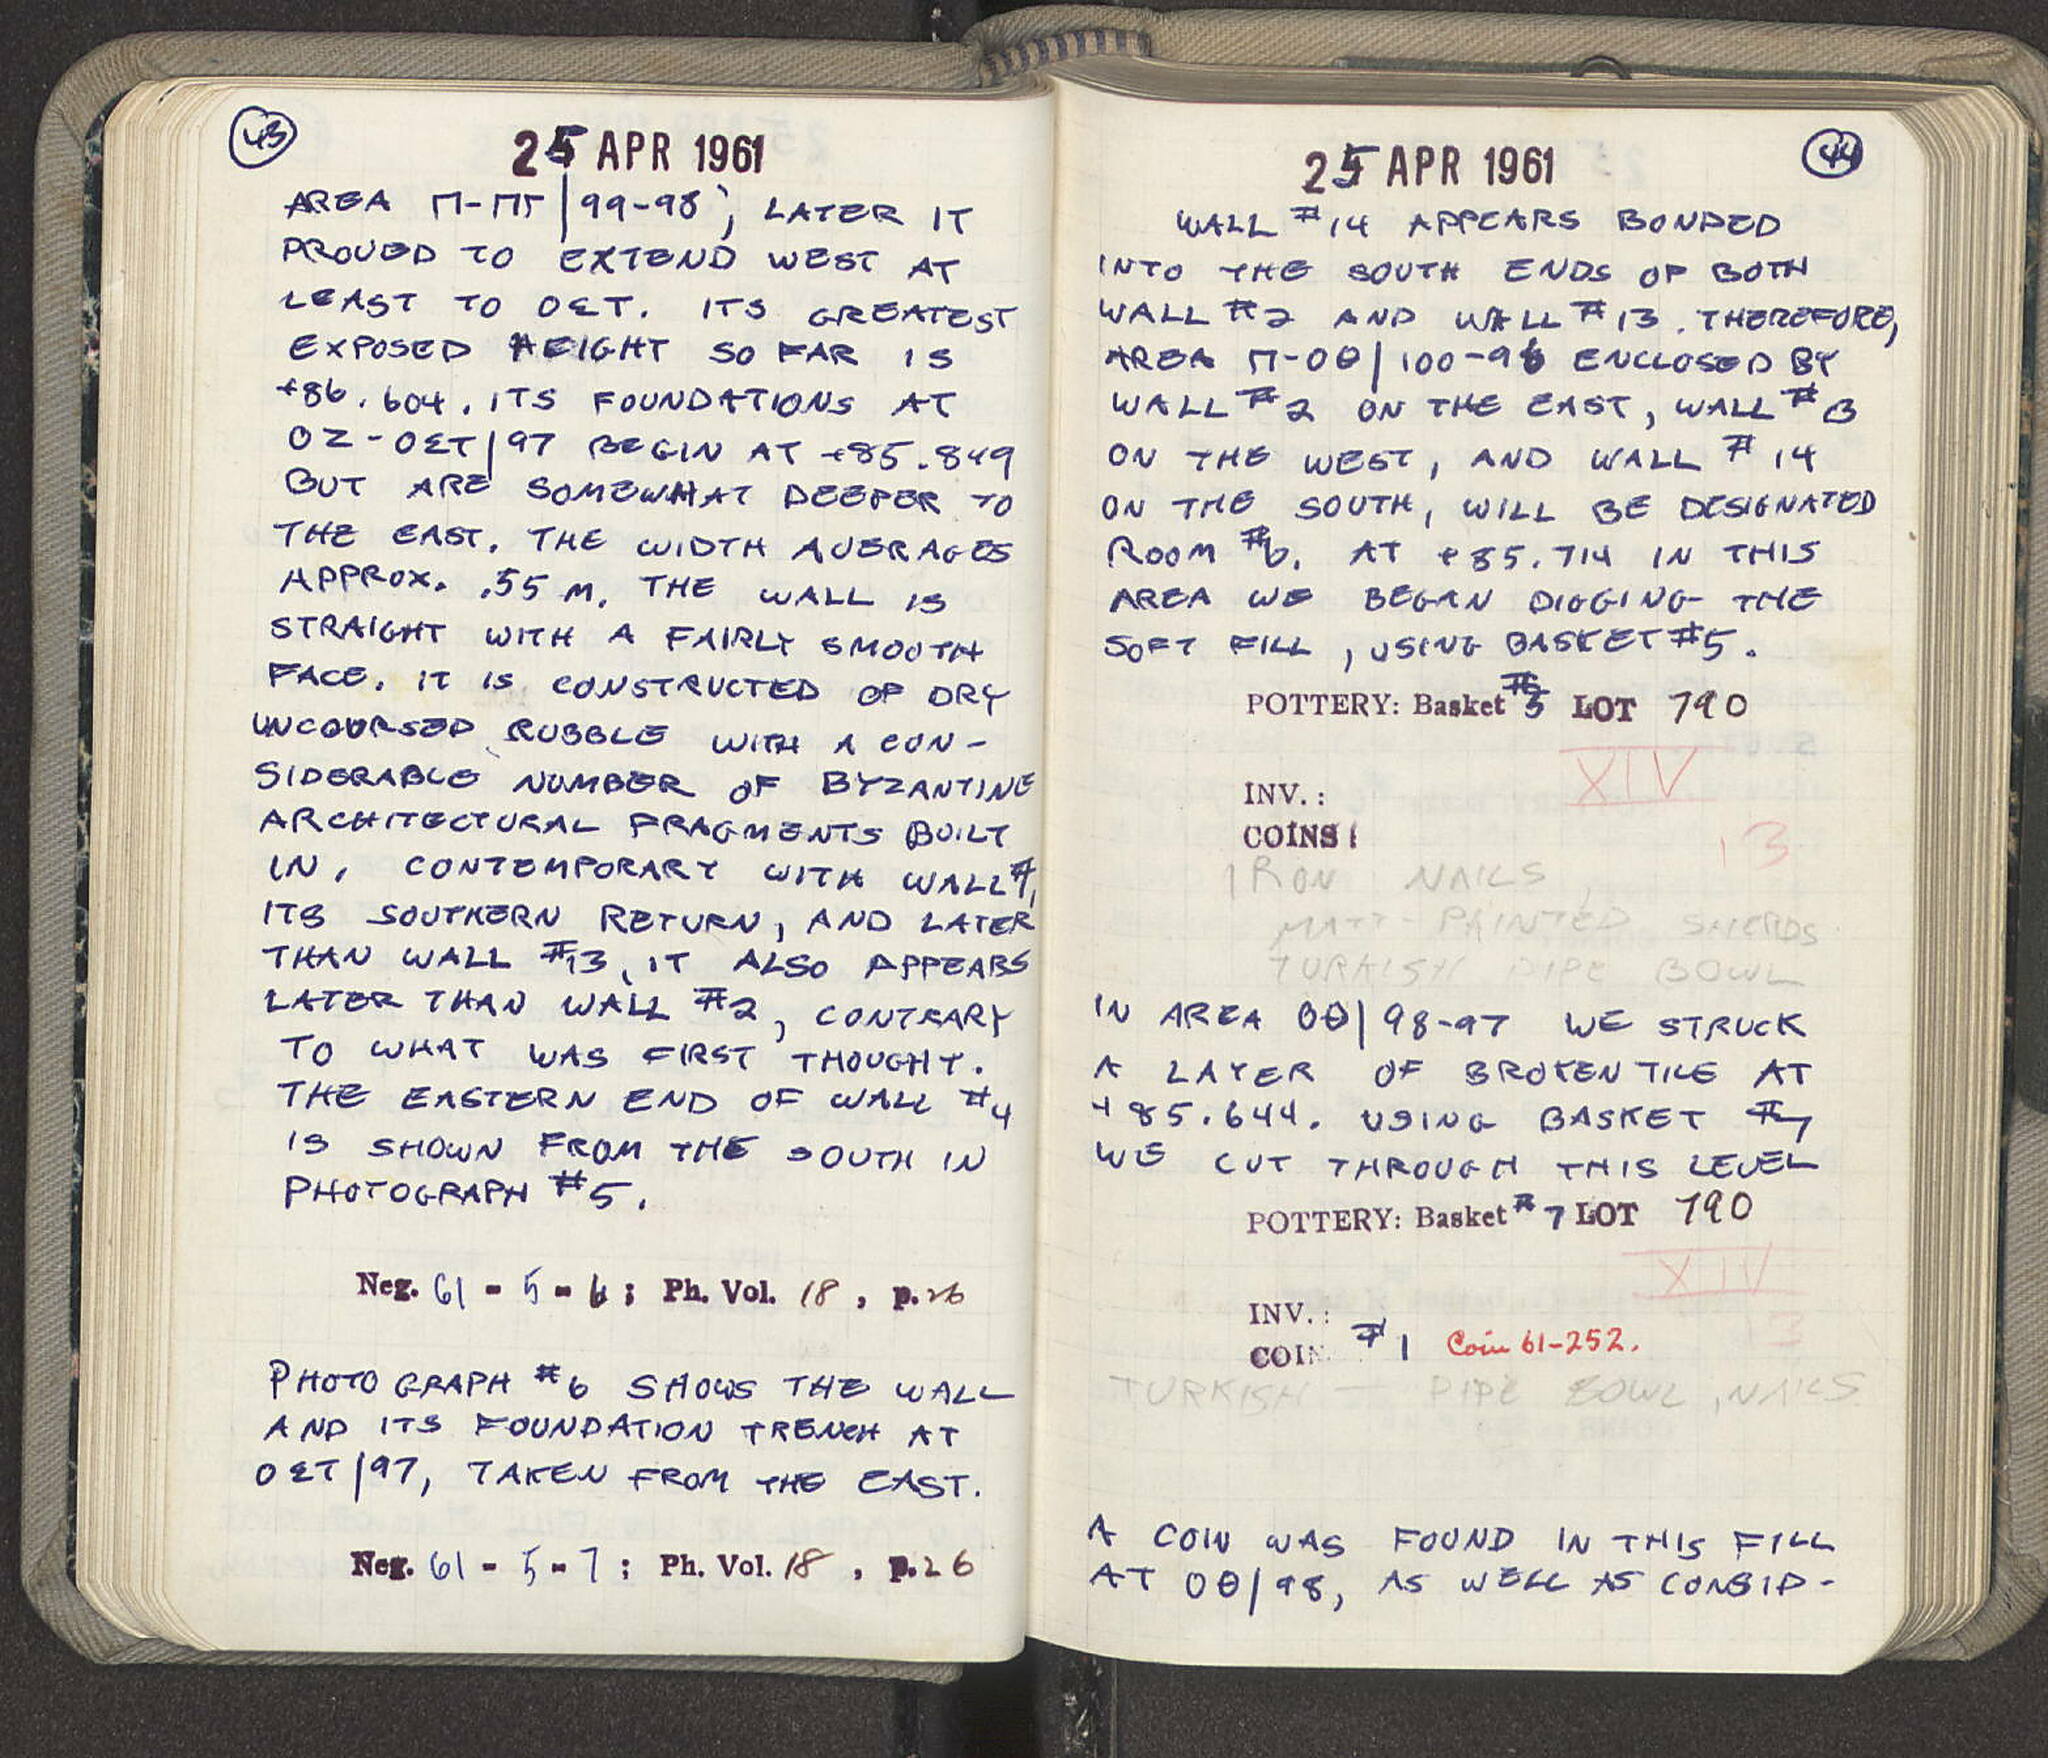 43
25 APR 1961
AREA Π-ΠΓ | 99-98; LATER IT
PROVED TO EXTEND WEST AT
LEAST TO ΟΣΤ. ITS GREATEST
EXPOSED HEIGHT SO FAR IS
+86.604. ITS FOUNDATIONS AT
ΟΖ-ΟΣΤ|97 BEGIN AT +85.849
BUT ARE SOMEWHAT DEEPER TO
THE EAST. THE WIDTH AVERAGES
APPROX. .55 M. THE WALL IS
STRAIGHT WITH A FAIRLY SMOOTH
FACE. IT IS CONSTRUCTED OF DRY
UNCOURSED RUBBLE WITH A CON-
SIDERABLE NUMBER OF BYZANTINE
ARCHITECTURAL FRAGMENTS BUILT
IN. CONTEMPORARY WITH WALL #1,
ITS SOUTHERN RETURN, AND LATER
THAN WALL #13, IT ALSO APPEARS
LATER THAN WALL #2, CONTRARY
TO WHAT WAS FIRST THOUGHT.
THE EASTERN END OF WALL #4
IS SHOWN FROM THE SOUTH IN
PHOTOGRAPH #5.
Neg. 61 - 5 - 6 ; Ph. Vol. 18 , p. 26
PHOTOGRAPH #6 SHOWS THE WALL
AND ITS FOUNDATION TRENCH AT
ΟΣΤ|97, TAKEN FROM THE EAST.
Neg. 61 - 5 - 7 ; Ph. Vol. 18 , p. 26
44
25 APR 1961
WALL #14 APPEARS BONDED
INTO THE SOUTH ENDS OF BOTH
WALL #2 AND WALL #13. THEREFORE,
AREA Π-ΟΘ|100-96 ENCLOSED BY
WALL #2 ON THE EAST, WALL #13
ON THE WEST, AND WALL #14
ON THE SOUTH, WILL BE DESIGNATED
ROOM #6. AT +85.714 IN THIS
AREA WE BEGAN DIGGING THE
SOFT FILL, USING BASKET #5.
POTTERY: Basket #5 LOT 790
XIV
INV. :
COINS:
13
IRON NAILS,
MATT-PAINTED SHERDS
TURKISH PIPE BOWL
IN AREA ΟΘ|98-97 WE STRUCK
A LAYER OF BROKEN TILE AT
+85.644. USING BASKET #7
WE CUT THROUGH THIS LEVEL
POTTERY: Basket #7 LOT 790
XIV
INV. :
13
COIN #1 Coin 61-252.
TURKISH — PIPE BOWL, NAILS
A COIN WAS FOUND IN THIS FILL
AT ΟΘ|98, AS WELL AS CONSID-